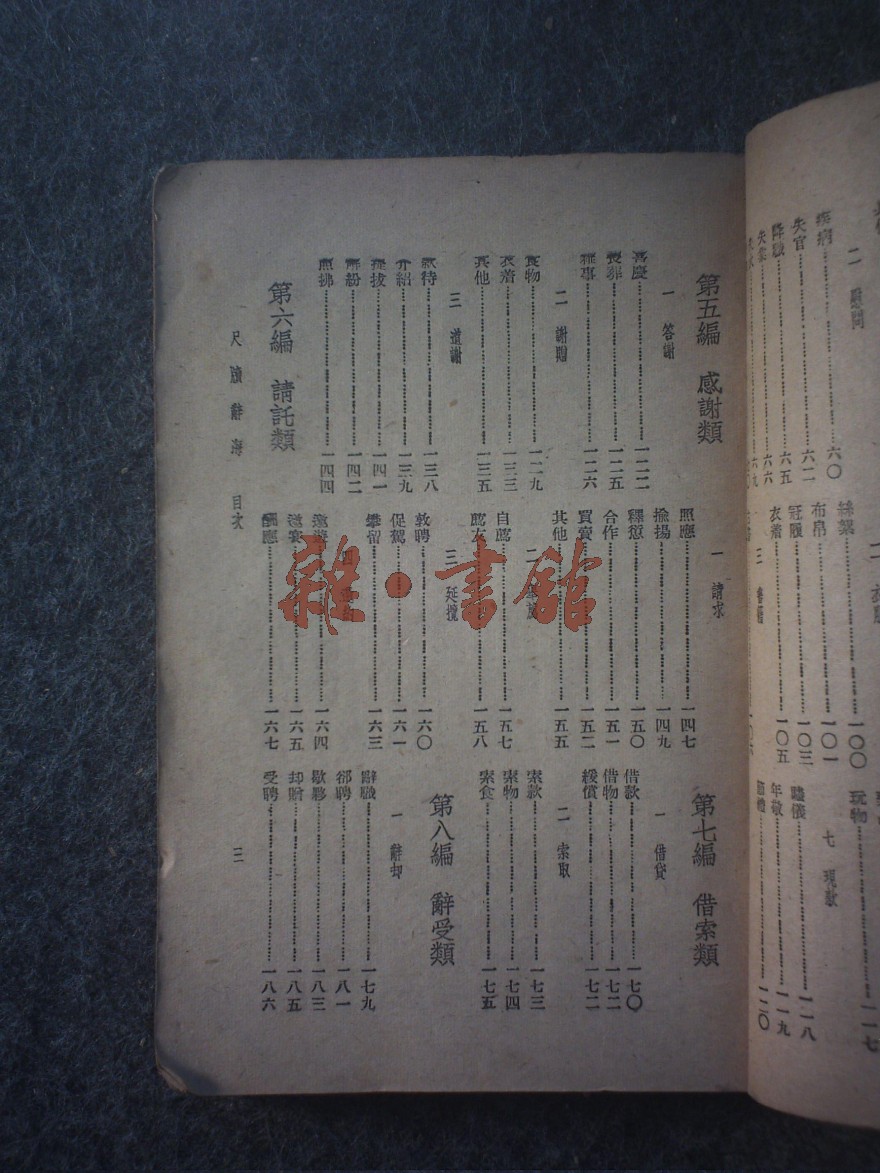 二 慰問
疾病……六〇
失官……六二
降職……六五
失業……六六
六九
二
一〇〇
布帛……一〇一
冠履……一〇三
衣着……一〇五
三
玩物……一一七
七 現款
贐儀……一一八
年敬……一一九
一二〇
第五編 感謝類
一 答謝
喜慶……一二二
喪葬……一二五
雜事……一二六
二 謝贈
食物……一二九
衣着……一三三
其他……一三五
三 道謝
款待……一三八
介紹……一三九
提拔……一四一
解紛……一四二
照拂……一四四
第六編 請託類
一 請求
照應……一四七
揄揚……一四九
釋愆……一五〇
合作……一五一
買賣……一五二
其他……一五五
二
自薦……一五七
薦友……一五八
三 延攬
敦聘……一六〇
促駕……一六一
攀留……一六三
一六四
邀宴……一六五
酬應……一六七
第七編 借索類
一 借貸
借款……一七〇
借物……一七二
緩償……一七二
二 索取
索款……一七三
索物……一七四
索食……一七五
第八編 辭受類
一 辭却
辭職……一七九
卻聘……一八一
歇夥……一八三
却贈……一八五
受聘……一八六
尺牘辭海 目次
三
雜·書館